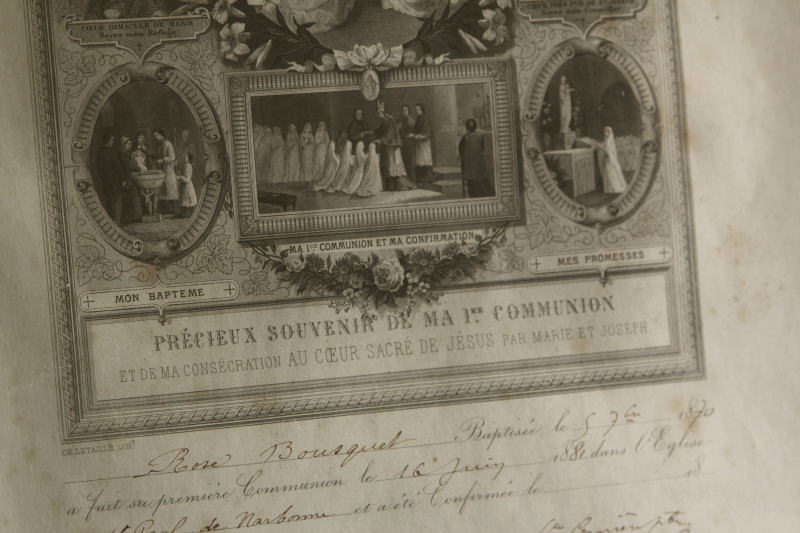 CŒUR IMMACULÉ DE MARIE
Soyez mon Refuge
MA 1RE COMMUNION ET MA CONFIRMATION
MON BAPTEME
MES PROMESSES
PRÉCIEUX SOUVENIR DE MA 1RE COMMUNION
ET DE MA CONSÉCRATION AU CŒUR SACRÉ DE JÉSUS PAR MARIE ET JOSEPH
CH. LETAILLE EDIT
Rose Bousquet Baptisée le 5 7bre 1870
a fait sa première Communion le 16 Juin 1881 dans l'Eglise
St Paul de Narbonne et a été Confirmée le 18